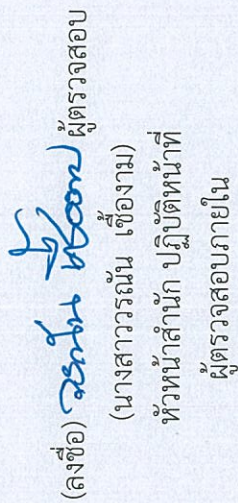 (ลงชื่อ) วรณัน เชื้องาม ผู้ตรวจสอบ
(นางสาววรณัน เชื้องาม)
หัวหน้าสำนัก ปฏิบัติหน้าที่
ผู้ตรวจสอบภายใน